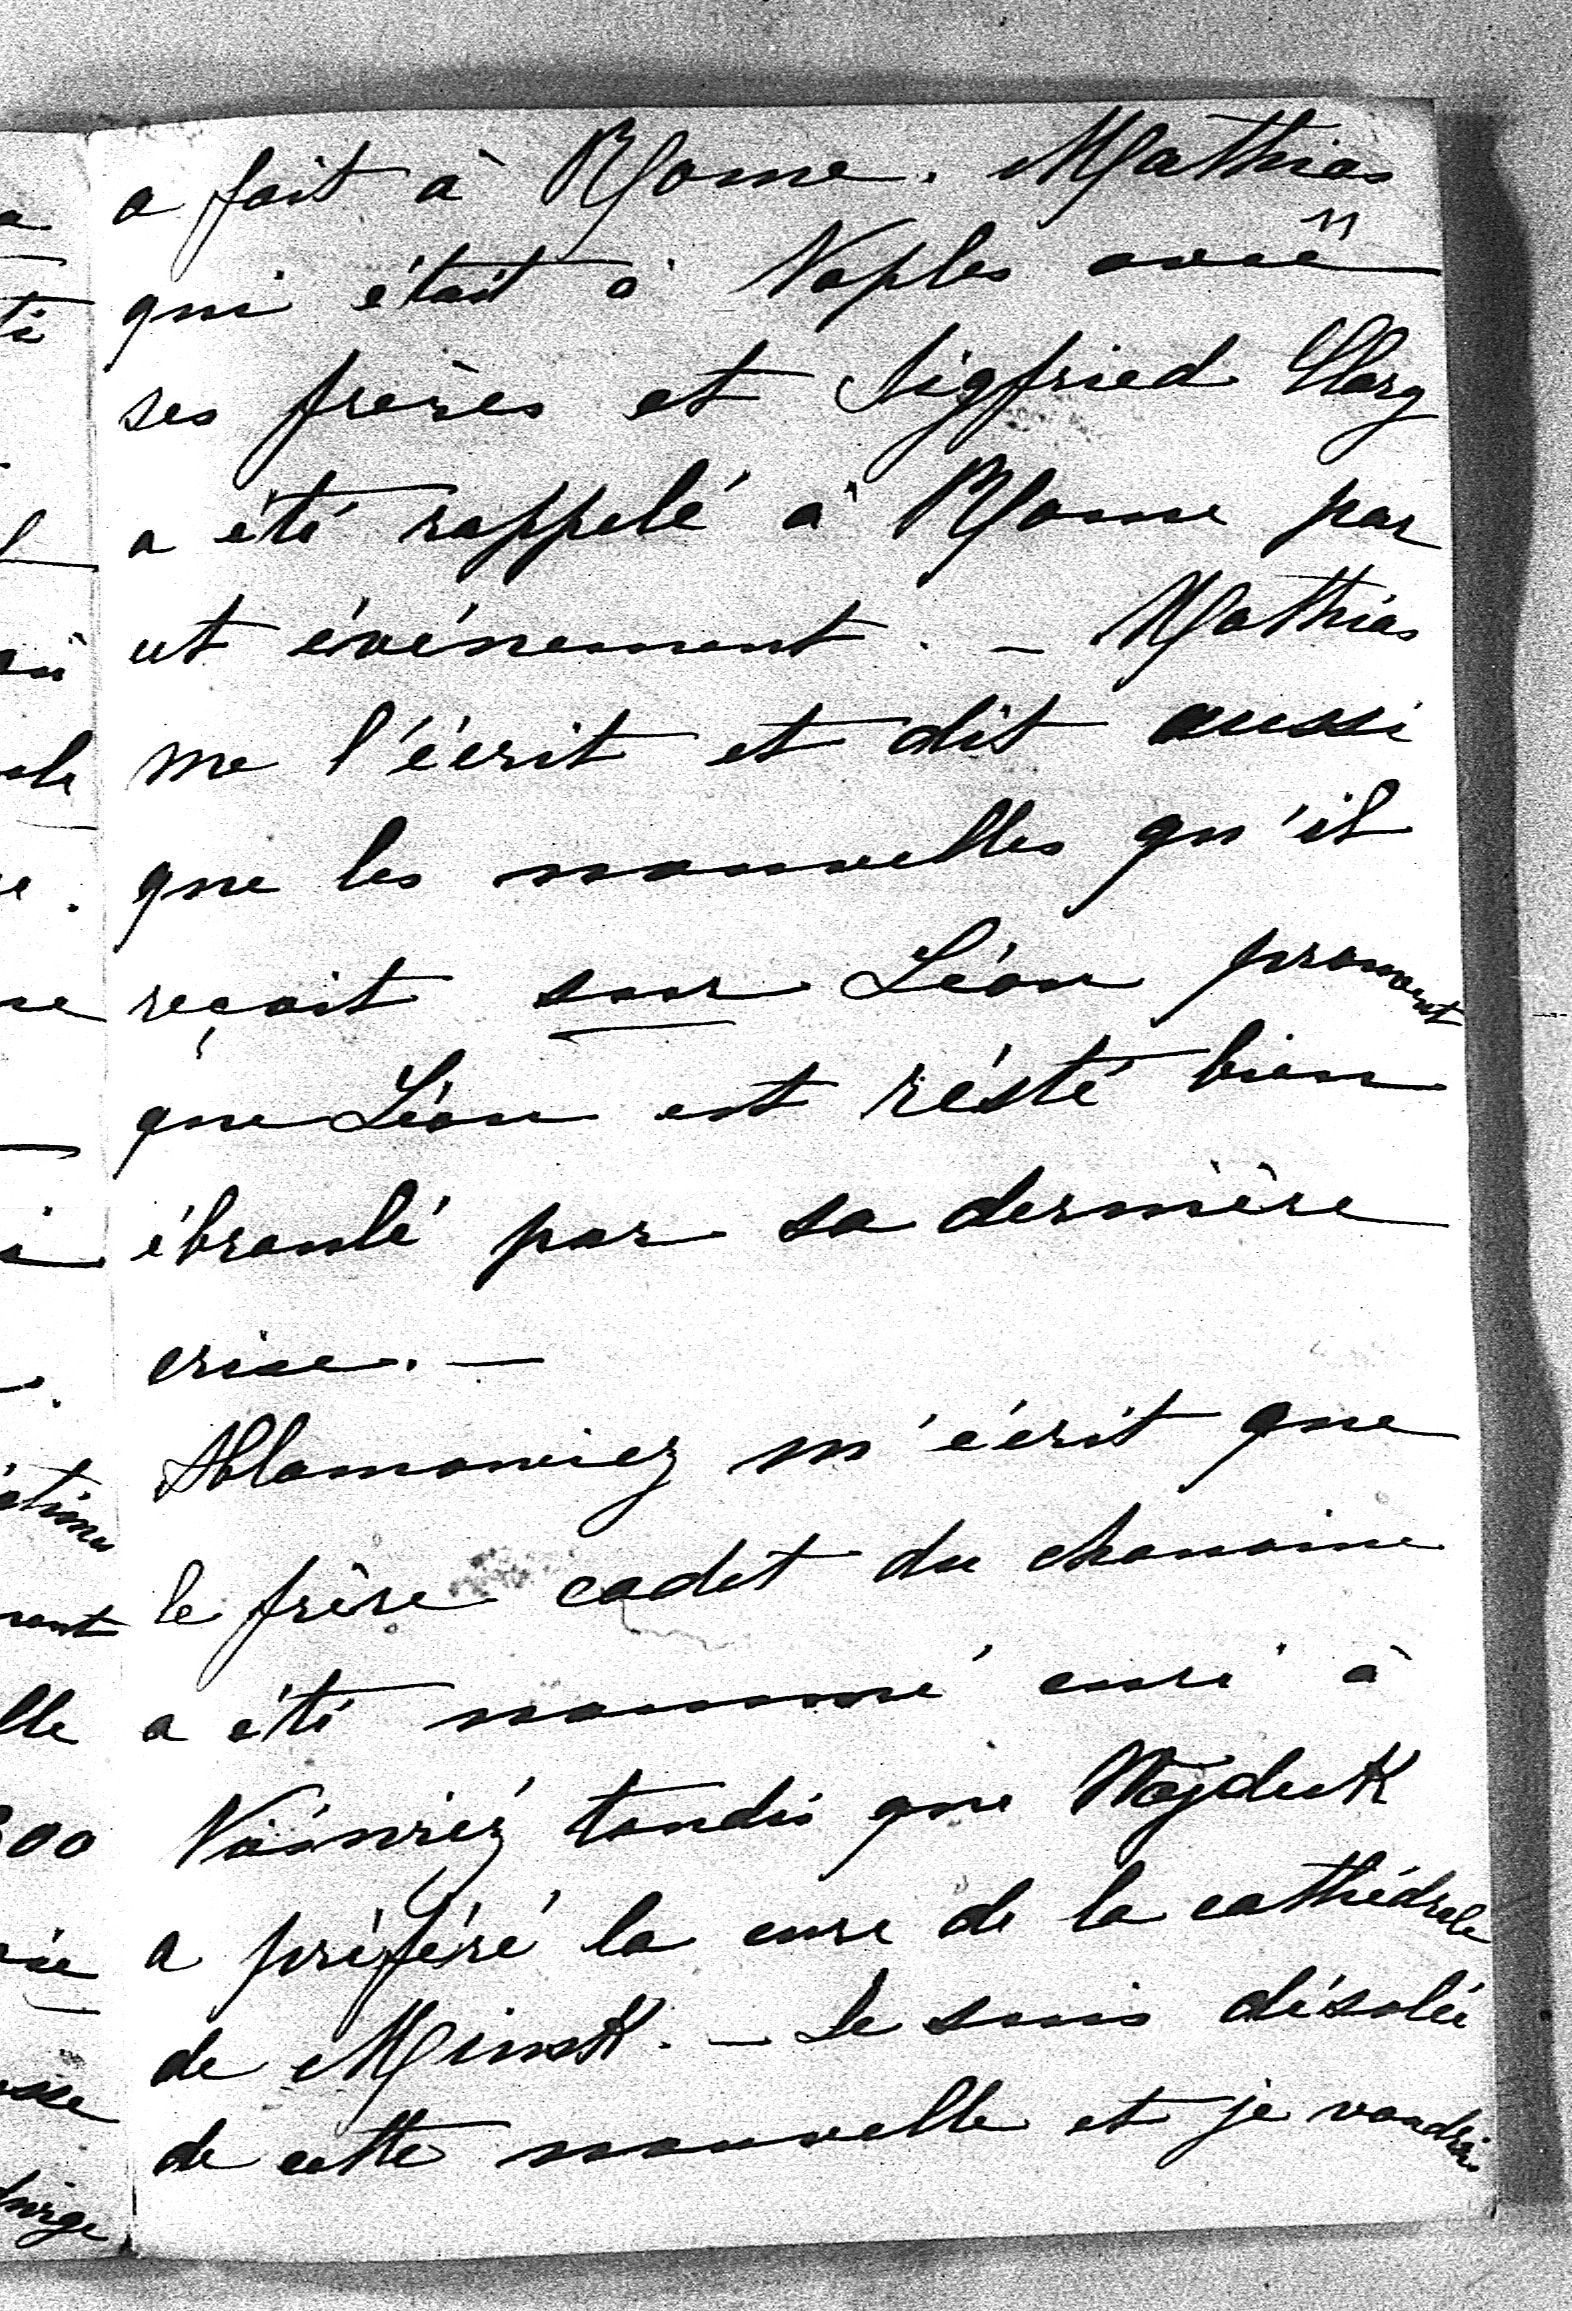 a fait à Rome. Mathias
qui était à Naples avec
ses frères et Sigfried
a été rappelé à Rome par
cet événement. — Mathias
me l'écrit et dit aussi
que les nouvelles qu'il
reçoit sur Léon prouvent
que Léon est résté bien
ébranlé par sa dernière
crise. —
m'écrit que
le frère cadet du chanoine
a été nommé curé à
tandis que Wajduk
a préféré la cure de la cathédrale
de Minsk. — Je suis désolée
de cette nouvelle et je voudrais